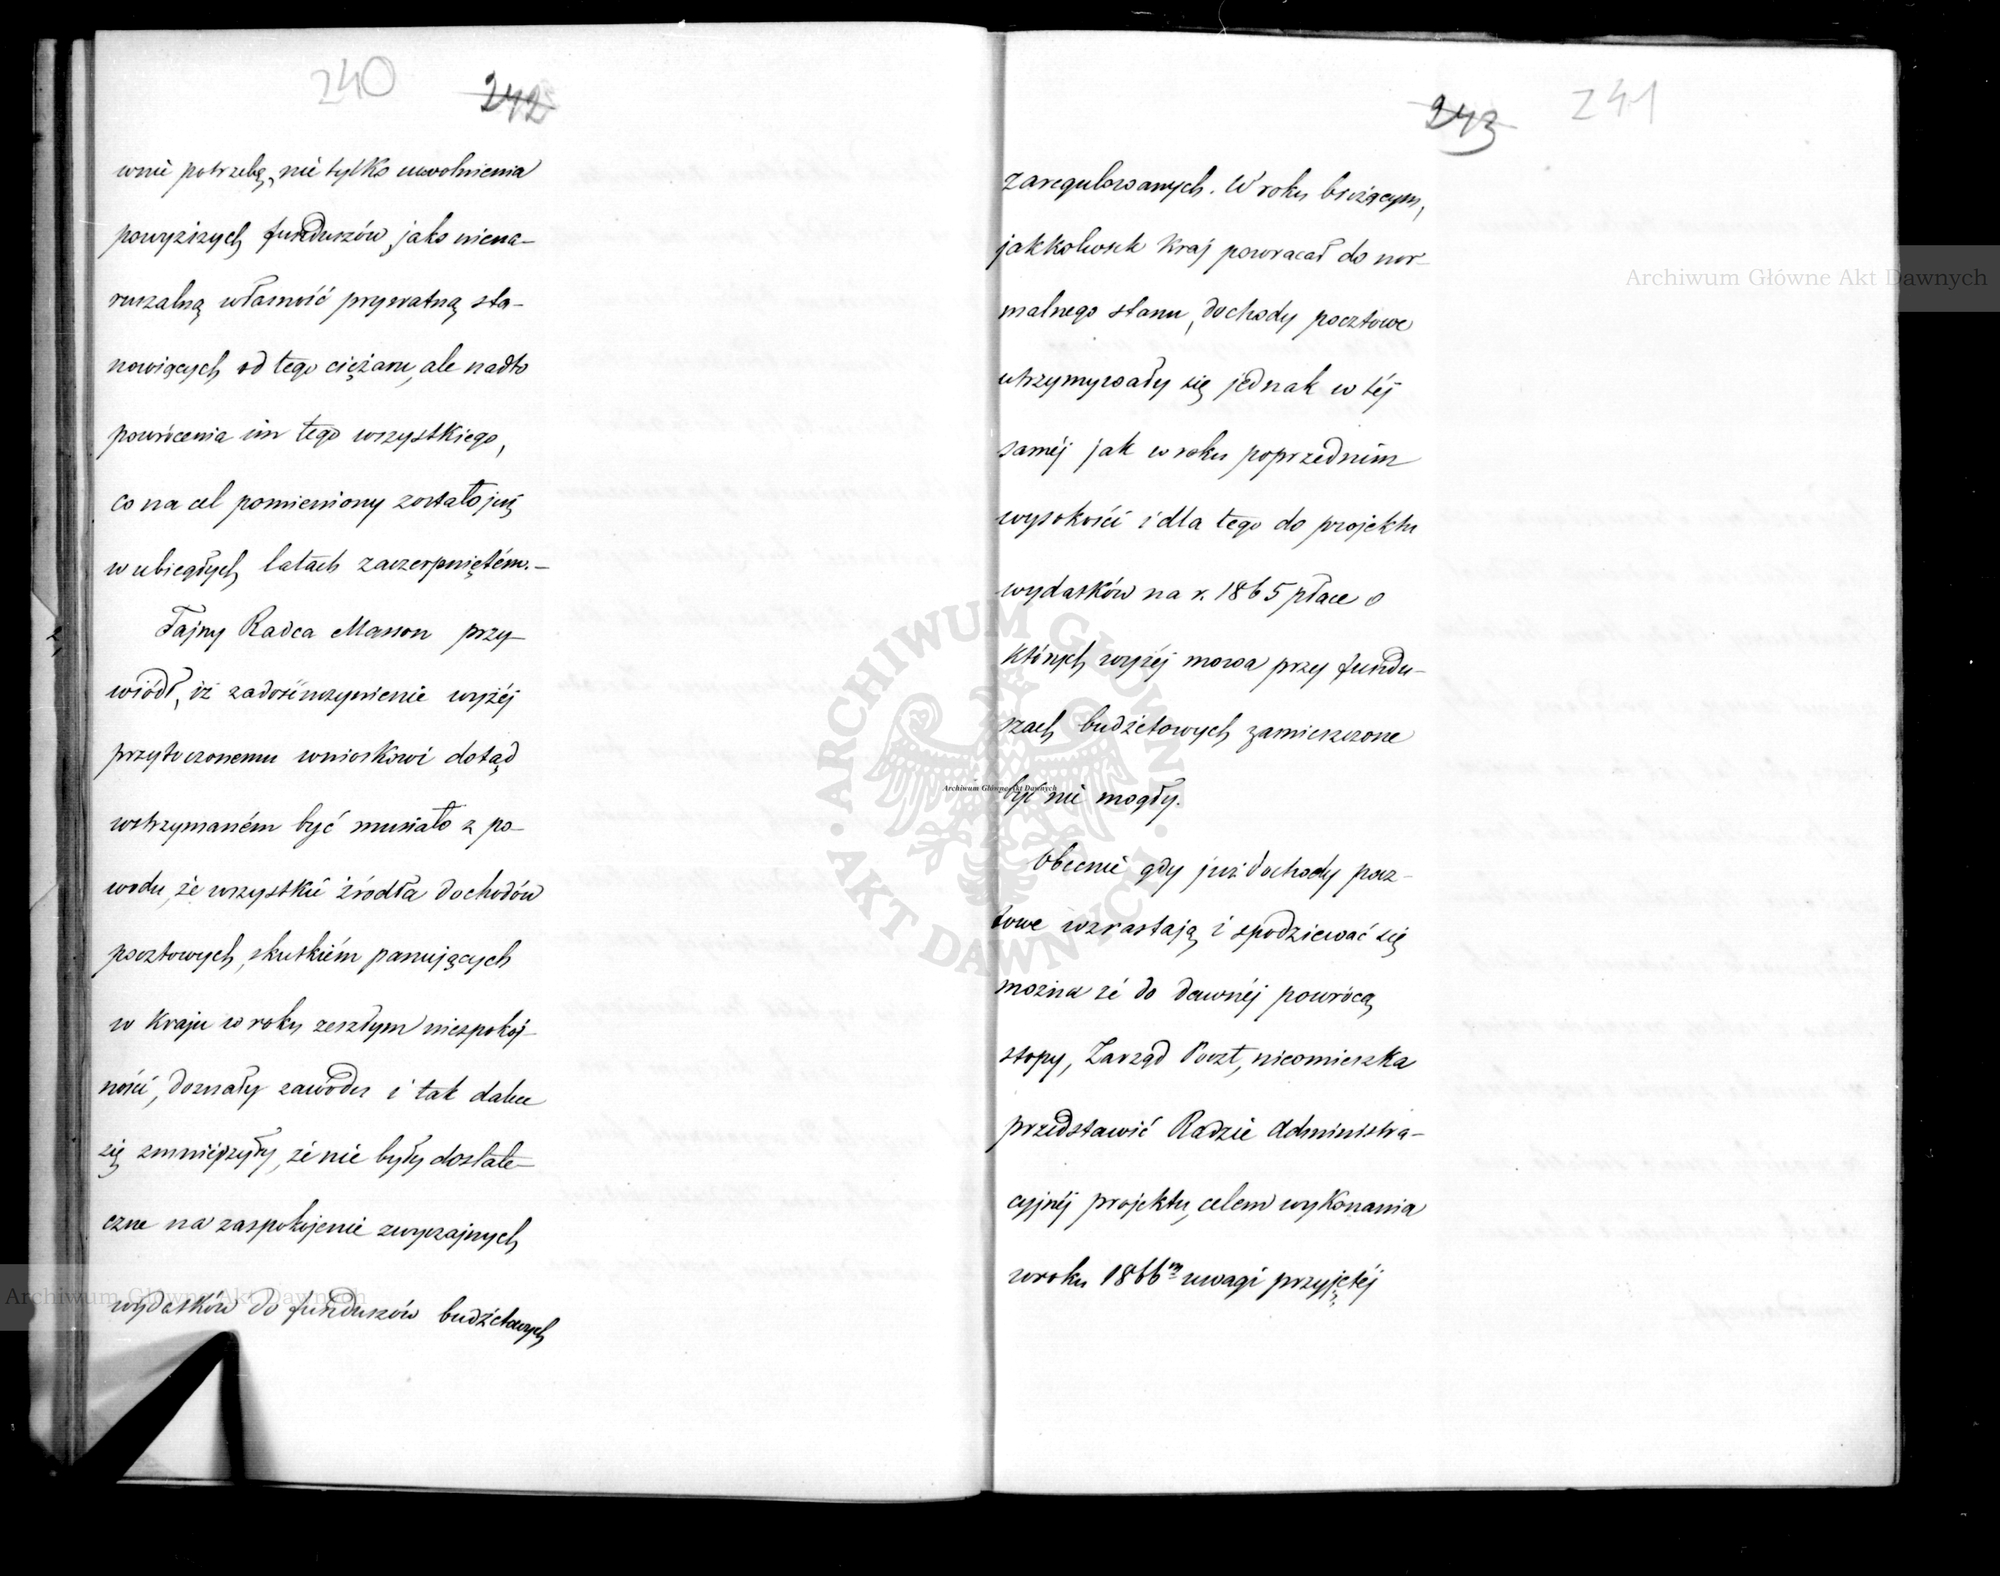 240 242
wnie potrzebą, nie tylko uwolnienia
powyższych funduszów, jako niena-
ruszalną własność prywatną sta-
nowiących od tego ciężaru, ale nadto
powrócenia im tego wszystkiego,
co na cel pomieniony zostało już
w ubiegłych latach zaczerpniętém.—
Tajny Radca Masson przy-
wiódł, iż zadosićuczynienie wyżéj
przytoczonemu wnioskowi dotąd
wstrzymaném być musiało z po-
wodu, że wszystkie źródła dochodów
pocztowych, skutkiém panujących
w Kraju w roku zeszłym niespokoj-
ności, doznały zawodu i tak dalece
się zmniéjszyły, że nie były dostate-
czne na zaspokojenie zwyczajnych
wydatków do funduszów budżetowych
243 241
zaregulowanych. W roku bieżącym,
jakkolwiek Kraj powracał do nor-
malnego stanu, dochody pocztowe
utrzymywały się jednak w téj
saméj jak w roku poprzednim
wysokości i dla tego do projektu
wydatków na r. 1865 płace o
których wyżéj mowa przy fundu-
szach budżetowych zamieszczone
być nie mogły.
Obecnie gdy już dochody pocz-
towe wzrastają i spodziewać się
można że do dawnéj powrócą
stopy, Zarząd Poczt, nieomieszka
przedstawić Radzie Administra-
cyjnéj projektu, celem wykonania
w roku 1866m uwagi przyjętéj
Archiwum Główne Akt Dawnych
Archiwum Główne Akt Dawnych
Archiwum Główne Akt Dawnych
ARCHIWUM GŁÓWNE AKT DAWNYCH